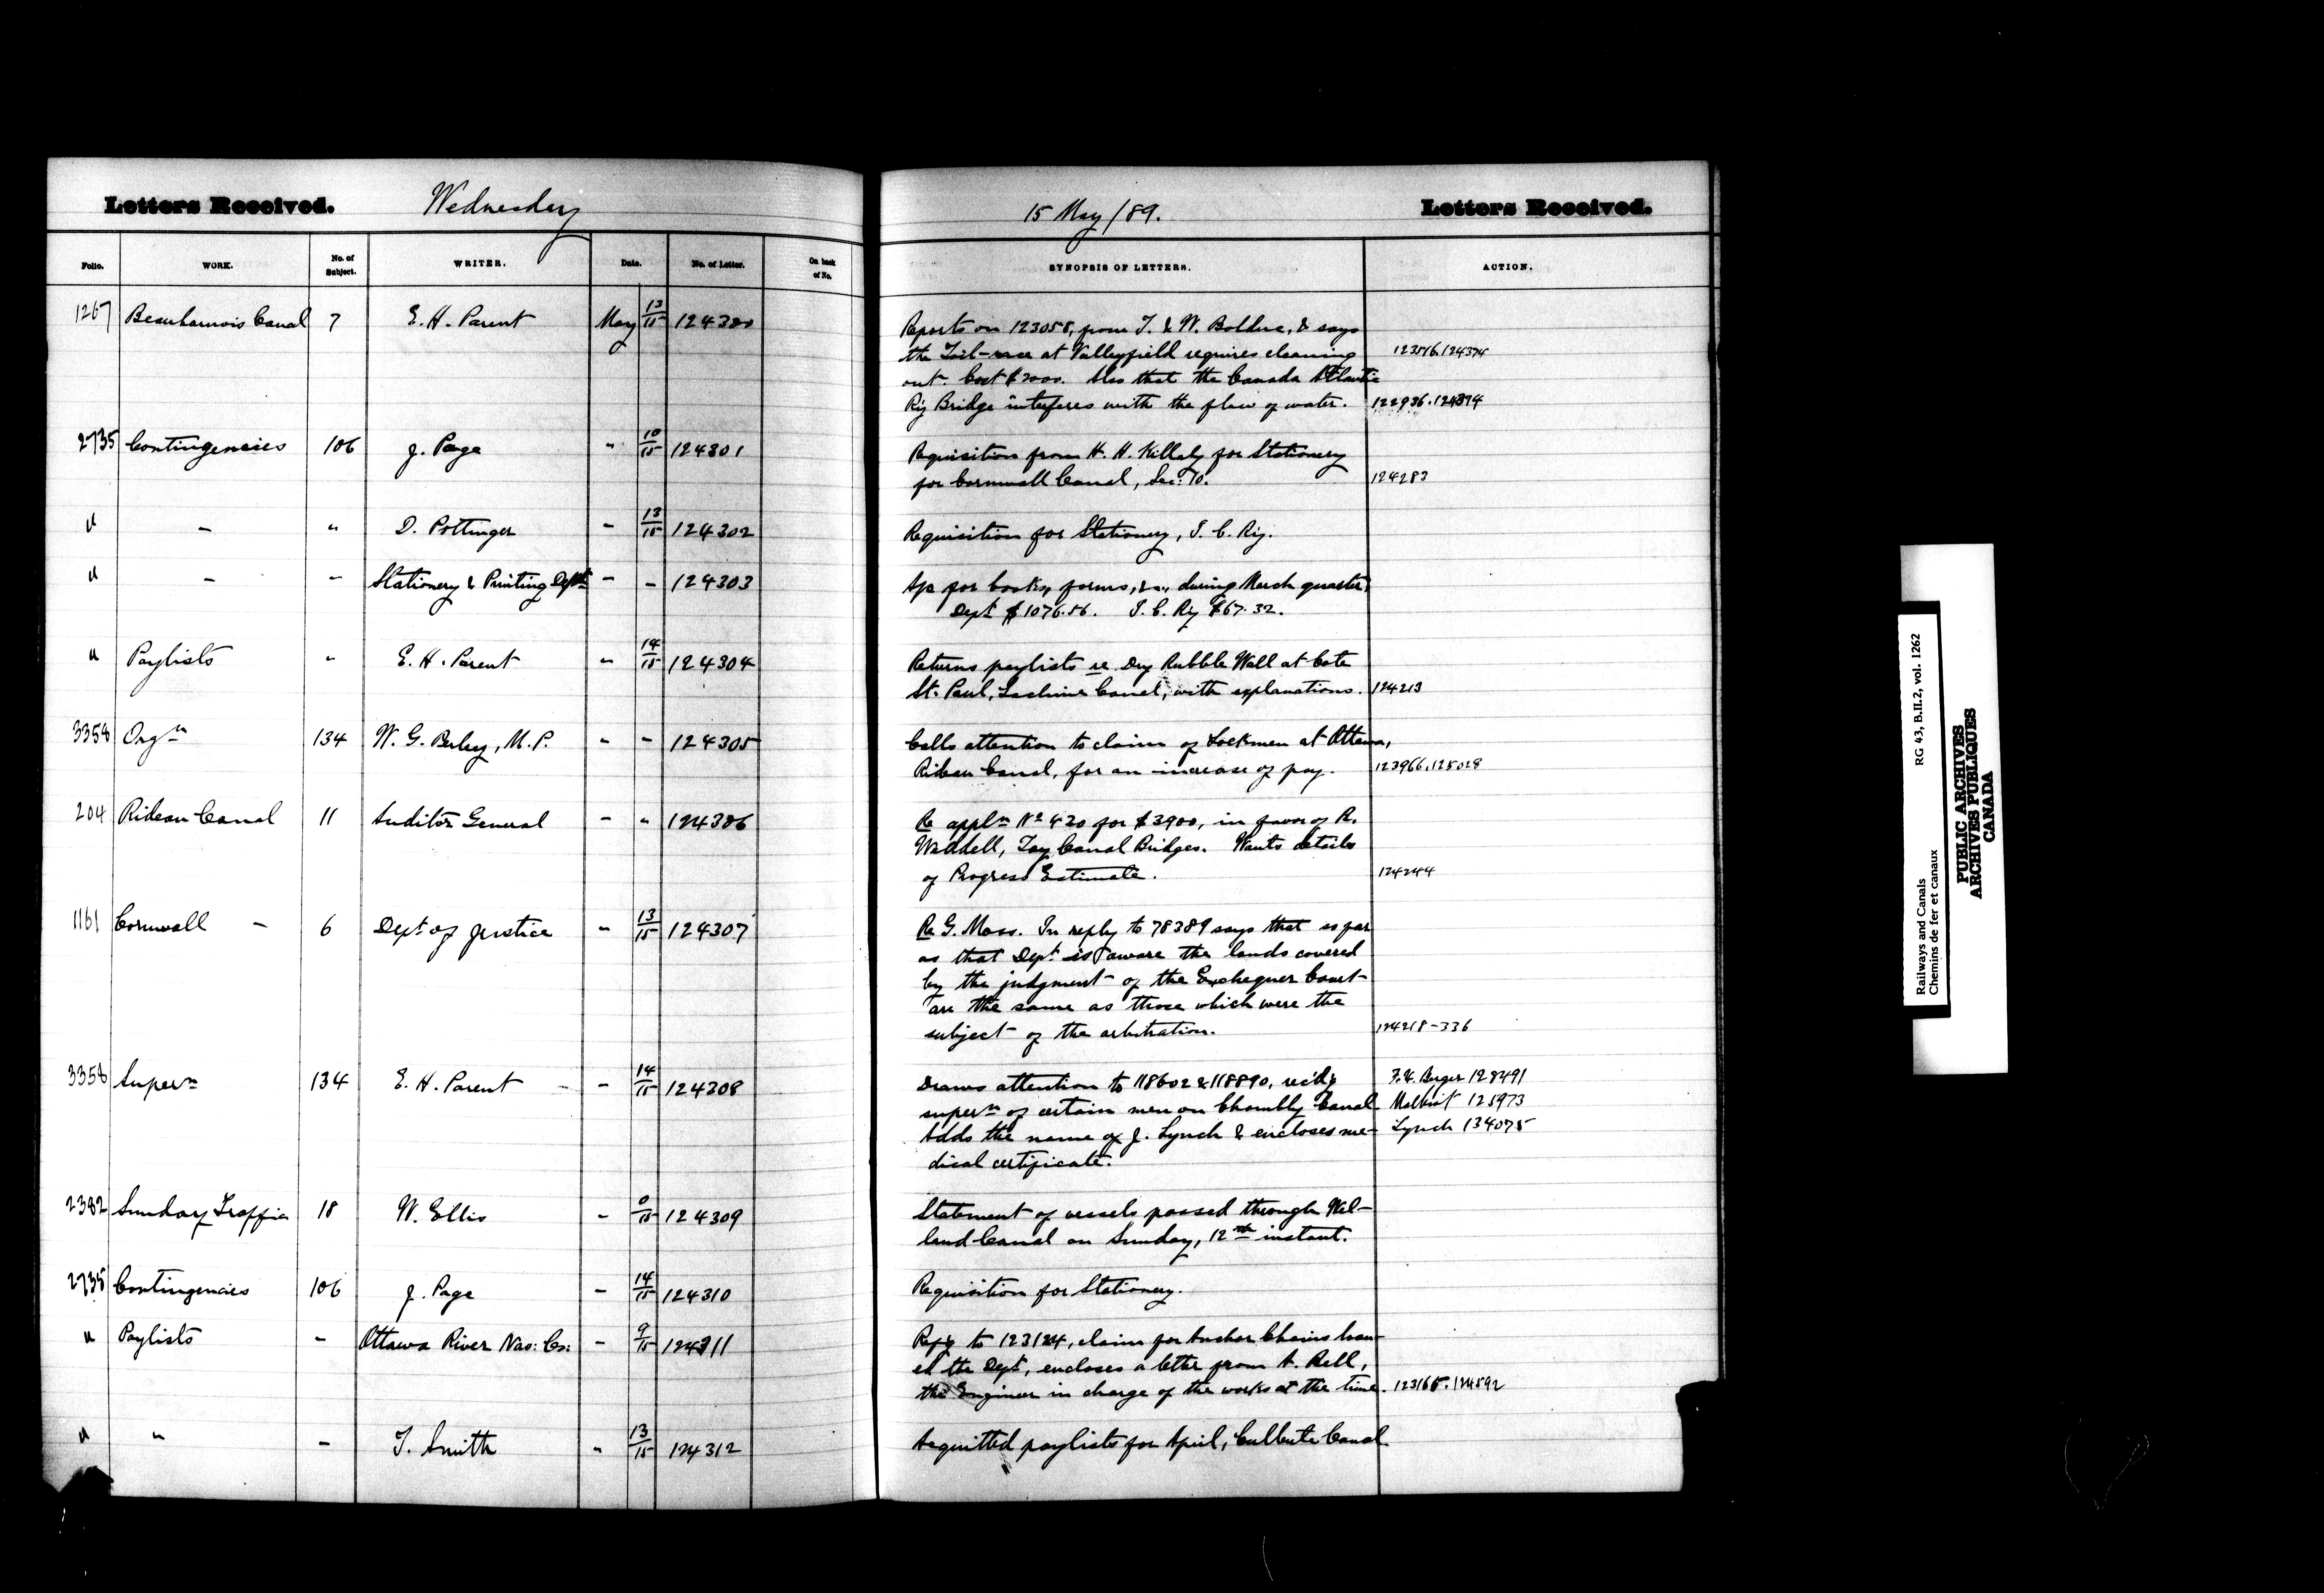 Letters Received.
Wednesday
15 May/89.
Letters Received.
Folio.
WORK.
No. of Subject.
WRITER.
Date.
No. of Letter.
On back of No.
SYNOPSIS OF LETTERS.
ACTION.
1267 Beauharnois Canal 7 E. H. Parent May 13/15 124300
Reports on 123058, from T. & W. & says
the Tail-race at Valleyfield requires cleaning 124374
out. Cost $2000. Also that the Canada Atlantic
Ry Bridge interferes with the flow of water. 122936.124374
2735 Contingencies 106 J. Page " 10/15 124301
Requisition from H. H. Killaly for Stationery
for Cornwall Canal, Sec: 10. 124283
" - " D. Pottinger - 13/15 124302
Requisition for Stationery, I. C. Ry.
" - - Stationery & Printing Dept - - 124303
A/c for books, forms, &c., during March quarter,
Dept $1076.56. I. C. Ry $67.32.
" Paylists " E. H. Parent " 14/15 124304
Returns paylists re Dry Rubble Wall at Cote
St. Paul, Lachine Canal, with explanations. 124213
3358 Orgn 134 W. G. Perley, M.P. - - 124305
Calls attention to claim of Lockmen at Ottawa,
Rideau Canal, for an increase of pay. 123966.125028
204 Rideau Canal 11 Auditor General - " 124306
Re appln No 420 for $3900, in favor of R.
Waddell, Tay Canal Bridges. Wants details
of Progress Estimate. 124244
1161 Cornwall - 6 Dept of Justice - 13/15 124307
Re G. Moss. In reply to 78389 says that so far
as that Dept is aware the lands covered
by the judgment of the Exchequer Court
are the same as those which were the
subject of the arbitration. 124218-336
3358 Supern 134 E. H. Parent - 14/15 124308
Draws attention to 118602 & 118890, rec'dg F. X. Berger 128491
supern of certain men on Chambly Canal 125973
Adds the name of J. Lynch & encloses me- Lynch 134075
dical certificate.
2382 Sunday Traffic 18 W. Ellis - 0/15 124309
Statement of vessels passed through Wel-
land Canal on Sunday, 12th instant.
2735 Contingencies 106 J. Page - 14/15 124310
Requisition for Stationery.
" Paylists - Ottawa River Nav: Co: - 9/15 124311
Refg to 123124, claim for Anchor Chains loan-
ed the Dept, encloses a letter from A. Bell,
the Engineer in charge of the works at the time. 123165.124592
" " - T. Smith " 13/15 124312
Acquitted paylists for April, Culbute Canal
Railways and Canals RG 43, B.II.2, vol. 1262
Chemins de fer et canaux
PUBLIC ARCHIVES
ARCHIVES PUBLIQUES
CANADA